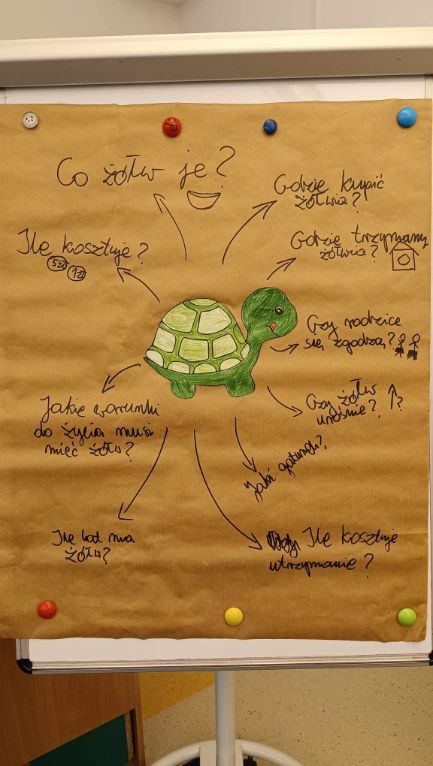 Co żółw je?
Gdzie kupić
żółwia?
Ile kosztuje?
5zł 1zł
Gdzie trzymamy
żółwia?
Czy rodzice
się zgodzą?
Czy żółw
urośnie? ?
Jakie warunki
do życia musi
mieć żółw?
Jaki gatunek?
Ile lat ma
żółw?
Ile kosztuje
utrzymanie?